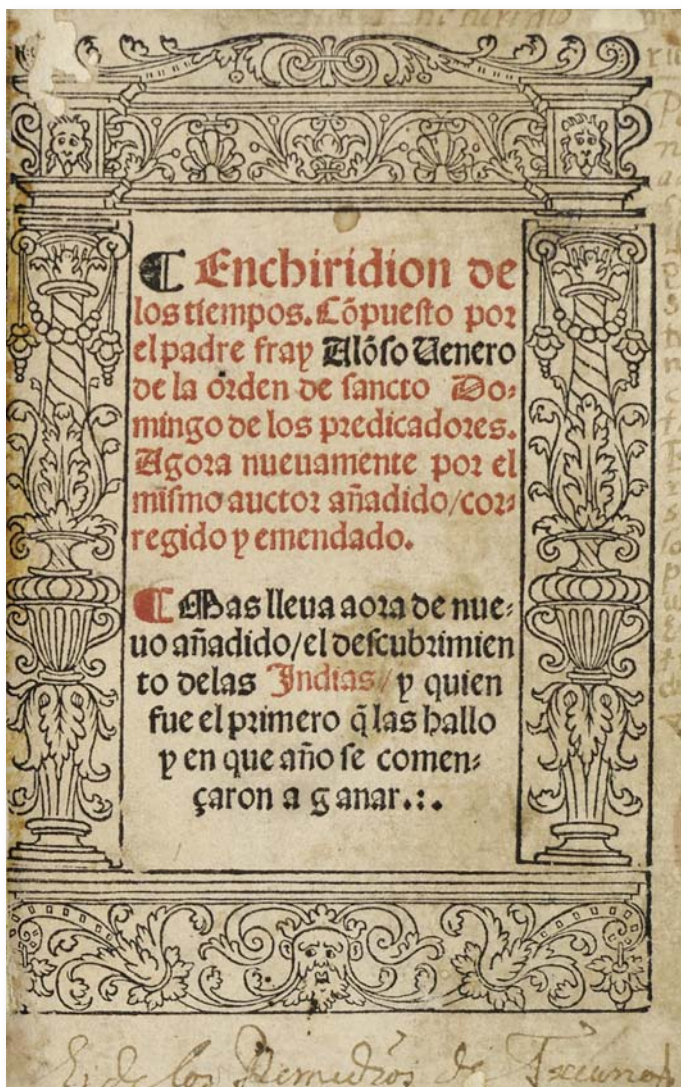 ¶ Enchiridion de
los tiempos. Cõpuesto por
el padre fray Alõso Uenero
de la orden de sancto Do-
mingo de los predicadores.
Agora nueuamente por el
mismo auctor añadido/cor-
regido y emendado.
¶ Mas lleua aora de nue-
uo añadido/el descubrimien
to delas Indias/ y quien
fue el primero q̃ las hallo
y en que año se comen-
çaron a ganar.:.
de los Remedios de